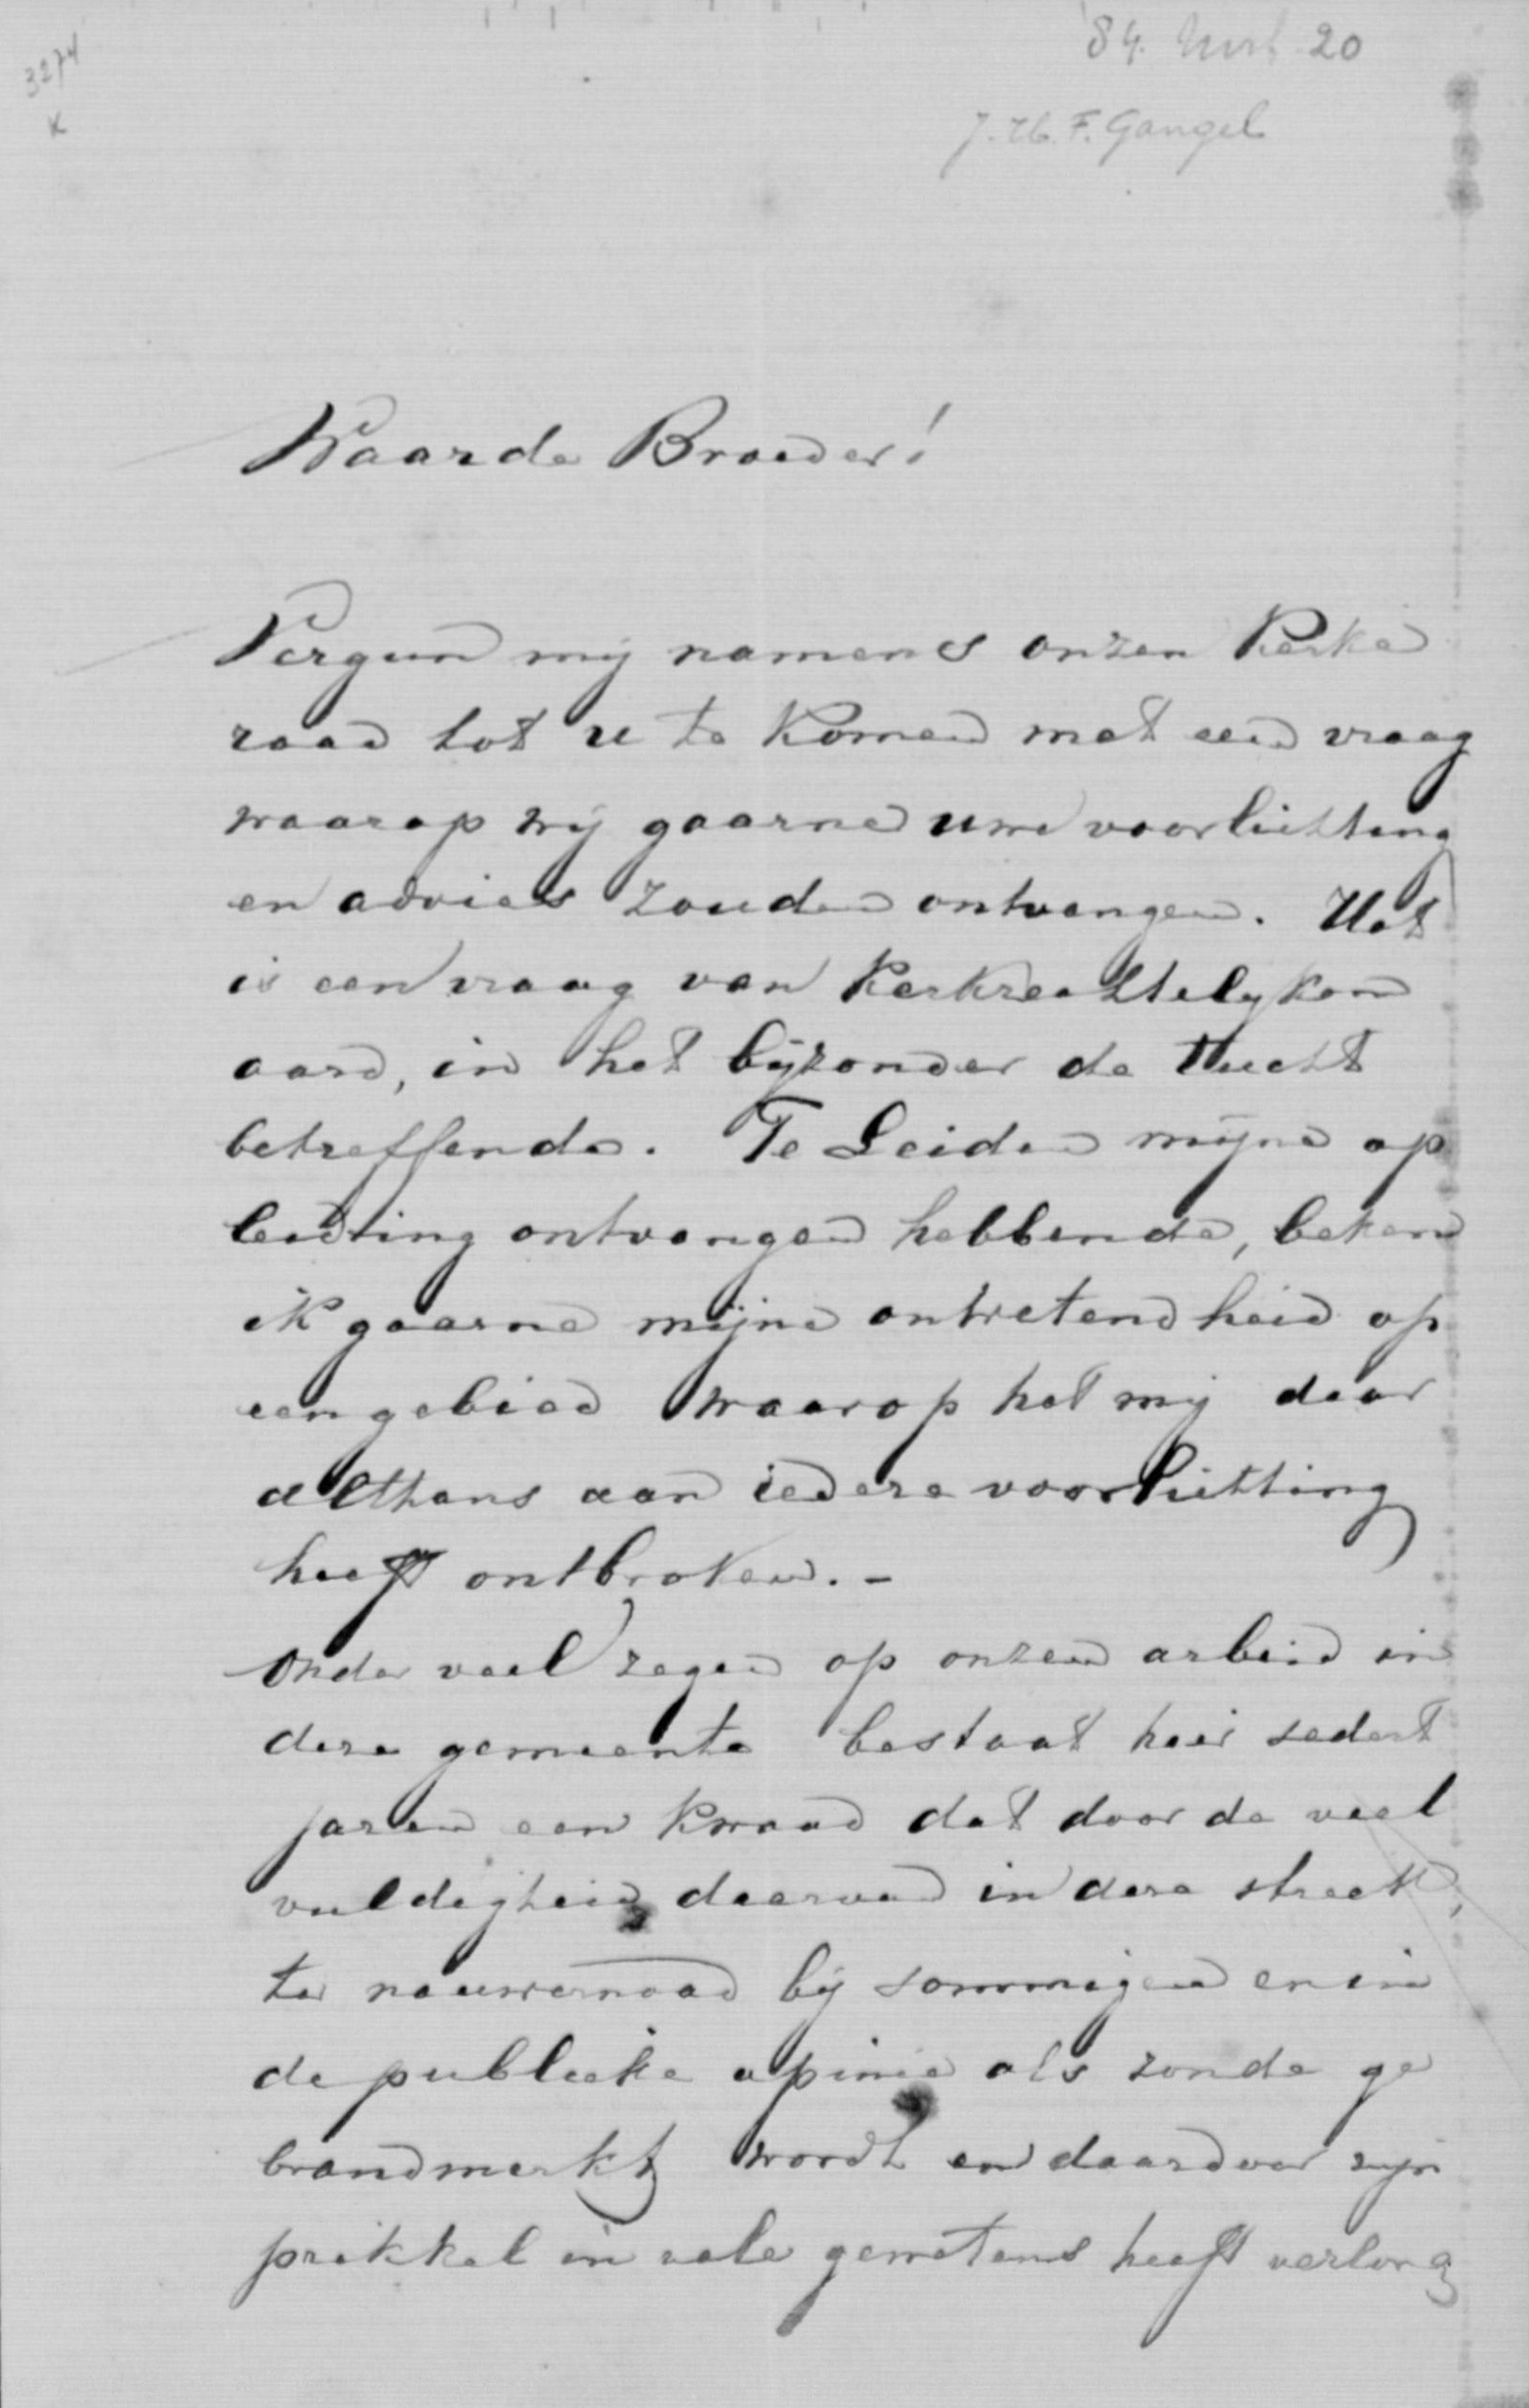 3274
K
84. Mrt 20
J. H. F. Gangel
Waarde Broeder!
Vergun mij namens onzen Kerke
raad tot u te komen met een vraag
waarop wij gaarne uwe voorlichting
en advies zouden ontvangen. Het
is een vraag van Kerkrechtelyken
aard, in het byzonder de tucht
betreffende. Te Leiden mijne op
leiding ontvangen hebbende, beken
ik gaarne mijne onwetendheid op
een gebied waarop het mij daar
althans aan iedere voorlichting
heeft ontbroken. -
Onder veel zegen op onzen arbeid in
deze gemeente bestaat hier sedert
jaren een kwaad dat door de veel
vuldigheid daarvan in deze streek,
ter nauwernood bij sommigen en in
de publieke opinie als zonde ge
brandmerkt wordt en daardoor zijn
prikkel in vele gewetens heeft verlong